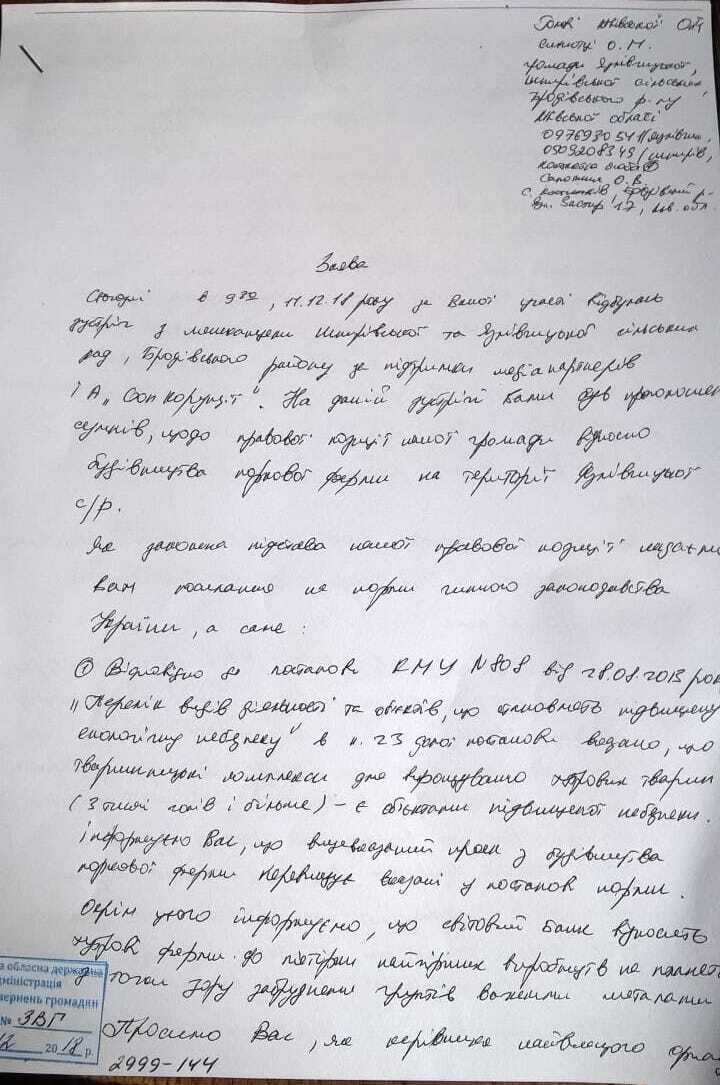 Голові Львівської ОДА
Синютці О.М.
громади Язлівчицької,
сільських,
Бродівського р-ну
Львівської області
0976930541
0509208349
контактна особа
О.В.
с. р-
17, Льв. обл.
Заява
Сьогодні в 9³⁰, 11.12.18 року за Вашої участі відбулась
зустріч з мешканцями та сільських
рад, Бродівського району за підтримки медіапартнерів
ІА „Стоп корупції". На даній зустрічі Вами був проголошен
сумнів, щодо правової позиції нашої громади відносно
будівництва норкової ферми на території
с/р.
Як законна підстава нашої правової позиції
Вам посилання на норми чинного законодавства
України, а саме:
① Відповідно до постанови КМУ №808 від 28.08.2013 рок
„Перелік видів діяльності та обєктів, що становлять підвищену
екологічну небезпеку" в п. 23 даної постанови вказано, що
тваринницькі комплекси для вирощування хутрових тварин
(3 тисячі голів і більше) – є обєктами підвищеної небезпеки.
інформуємо Вас, що вищевказаний проєк з будівництва
норкової ферми перевищує вказані у постанов норми.
Окрім цього інформуємо, що світовий банк відносить
хутрові ферми до пятірки найгірших виробництв на планеті
з точки зору забруднення грунтів важкими металами
Просимо Вас, як керівника найвищого орга
2999-144
а обласна державна
дміністрація
вернень громадян
№ ЗВГ
12 2018 р.